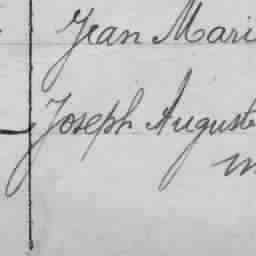 Jean Mari
Joseph Auguste